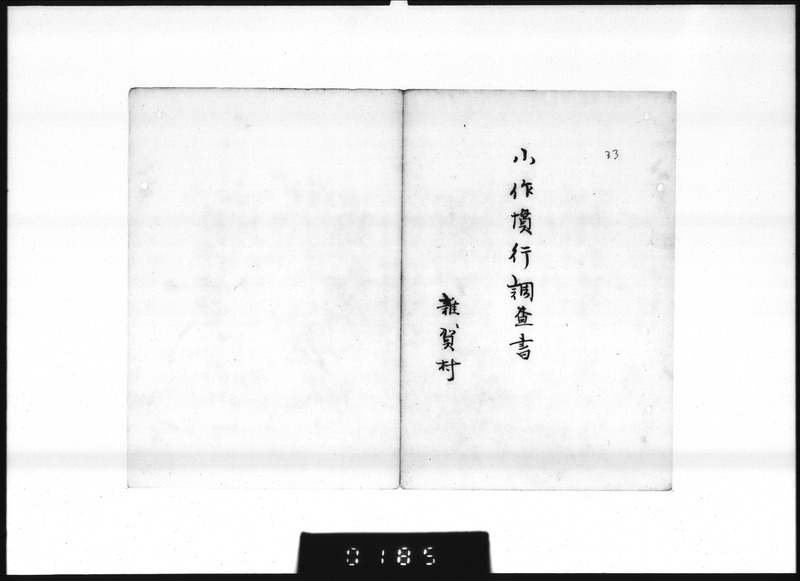 33
小作慣行調査書
雜賀村
0185